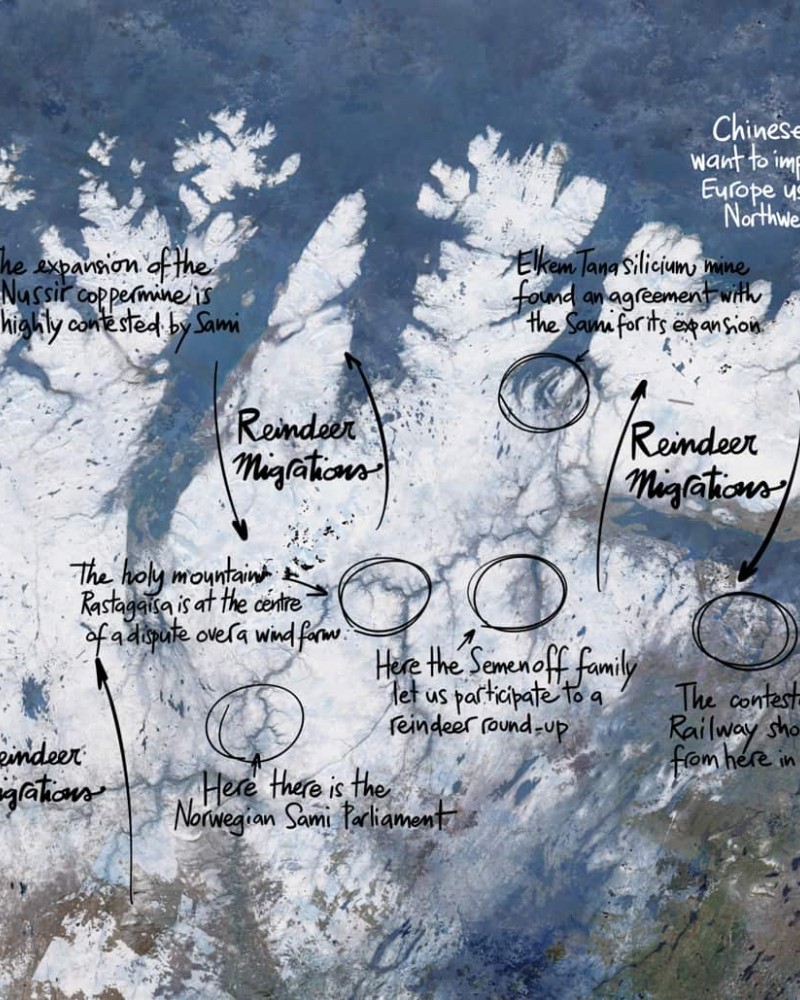 Chinese
want to imp
Europe us
Northwe
he expansion of the
Nussir coppermine is
highly contested by Sami
Elkem Tana silicium mine
found an agreement with
the Sami for its expansion
Reindeer
Migrations
Reindeer
Migrations
The holy mountain
Rastagaisa is at the centre
of a dispute over a wind farm
Here the Semenoff family
let us participate to a
reindeer round-up
The contest
Railway sho
from here in
eindeer
igrations
Here there is the
Norwegian Sami Parliament